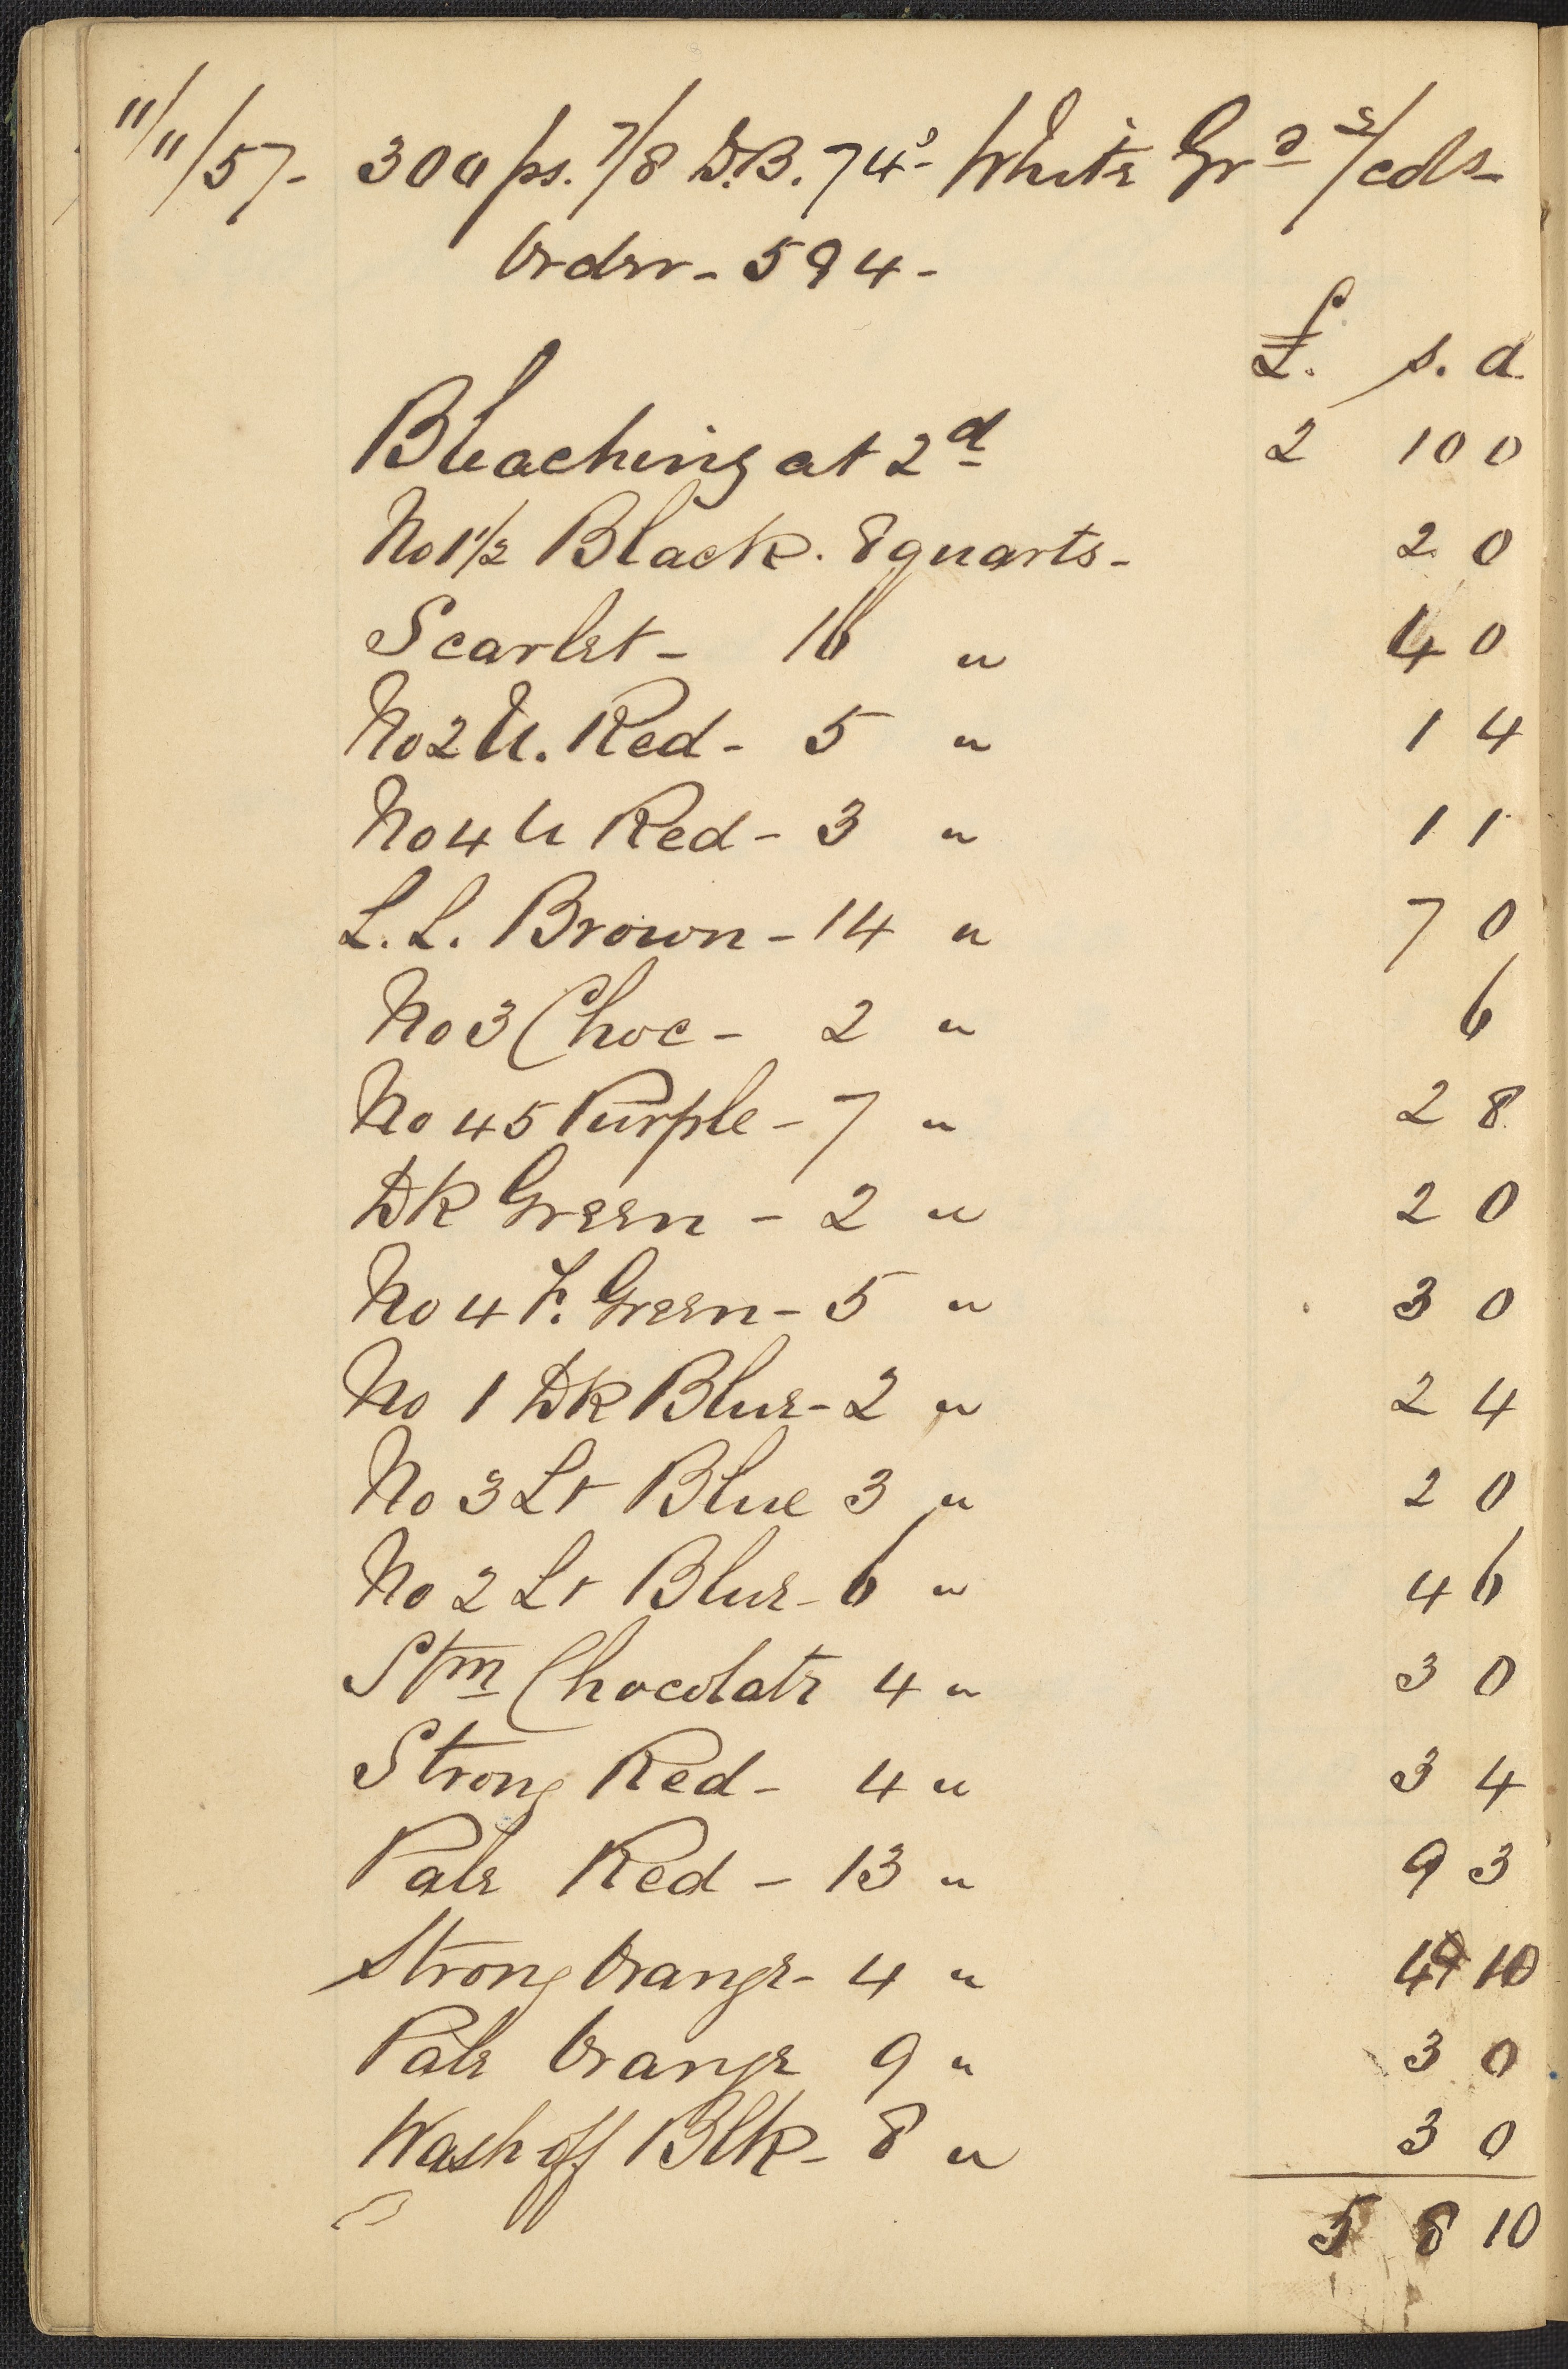 11/11/57- 300 ps. 7/8 D.B. 74s- White Grd 5/cols-
Order - 594 -
£. s. d
Bleaching at 2d 2 10 0
No 1½ Black. 8 quarts - 2 0
Scarlet - 16 " 4 0
No 2 U. Red - 5 " 1 4
No 4 U Red - 3 " 1 1
L. L. Brown - 14 " 7 0
No 3 Choc - 2 " 6
No 45 Purple - 7 " 2 8
DK Green - 2 " 2 0
No 4 F. Green - 5 " 3 0
No 1 DK Blue - 2 " 2 4
No 3 Lt Blue 3 " 2 0
No 2 Lt Blue - 6 " 4 6
Stm Chocolate 4 " 3 0
Strong Red - 4 " 3 4
Pale Red - 13 " 9 3
Strong Orange - 4 " 4 10
Pale Orange 9 " 3 0
Wash off Blk - 8 " 3 0
5 8 10